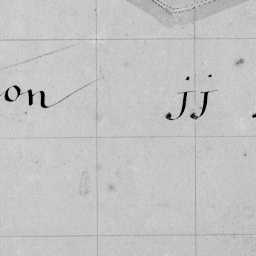 on jj